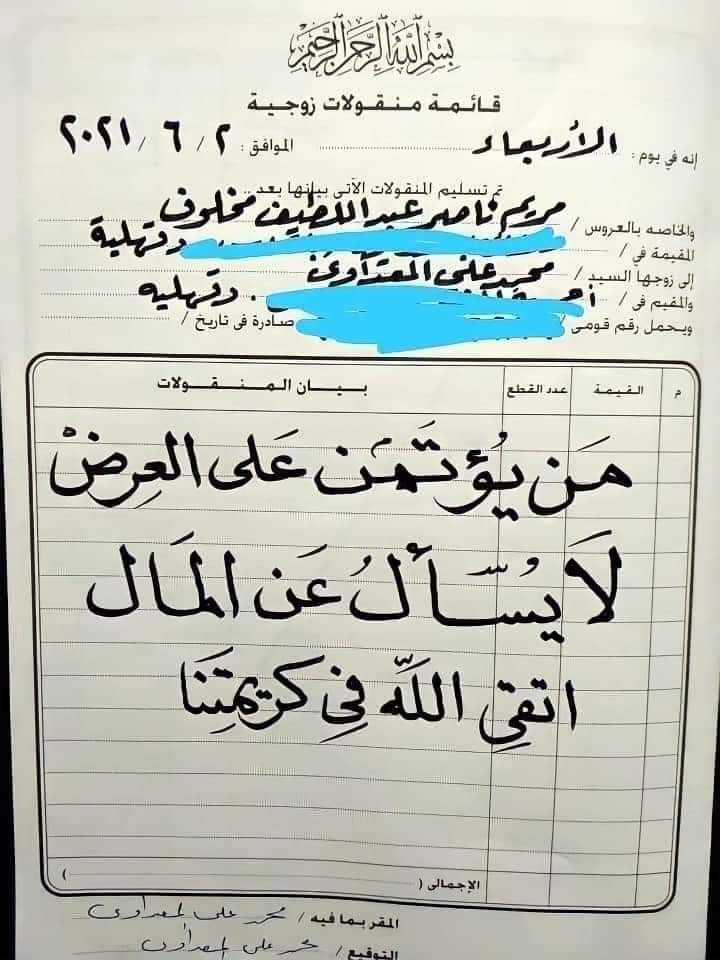 بسم الله الرحمن الرحيم
قائمة منقولات زوجية
إنه في يوم : الأربعاء الموافق : ٢ / ٦ / ٢٠٢١
تم تسليم المنقولات الآتى بيانها بعد ..
والخاصه بالعروس / مريم ناصر عبد اللطيف مخلوف
المقيمة في / دقهلية
إلى زوجها السيد / محمد على المعداوى
والمقيم فى / دقهليه
ويحمل رقم قومى / صادرة فى تاريخ /
م القيمة عدد القطع بيان المنقولات
مَن يُؤتَمَن عَلى العِرضْ
لَا يُسّأَلُ عَن المَال
اتقِي اللَّه فِي كريمتِنَا
الإجمالى ( )
المقر بما فيه / محمد على المعداوى
التوقيع / محمد على المعداوى